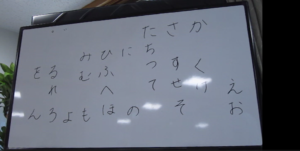 えお
かくけ
さすせそ
たちつて
にの
ひふへほ
みむも
よ
るれろ
をん